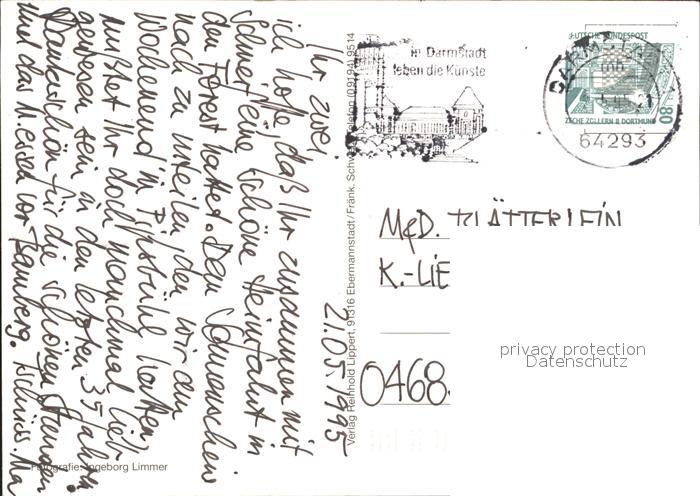 21.05.1995
Ihr zwei,
ich hoffe, daß Ihr zusammen mit
Schnert eine schöne Heimfahrt in
den Forest hattet. Dem Schmerzchen
nach zu urteilen den wir am
Wochenend in hatten,
müßet Ihr doch manchmal lieb
gewesen sein in den letzten 35 Jahren
Dankeschön für die schönen Stunden
und das Niesen vor Bamberg. Tschüss.
Fotografie: Ingeborg Limmer
Verlag Reinhold Lippert, 91316 Ebermannstadt/Fränk. Schweiz, Telefon (09194) 9514
in Darmstadt
leben die Künste
DEUTSCHE BUNDESPOST
80
ZECHE ZOLLERN II DORTMUND
64293
M&D. BLÄTTERLEIN
K.-LIE
0468
privacy protection
Datenschutz